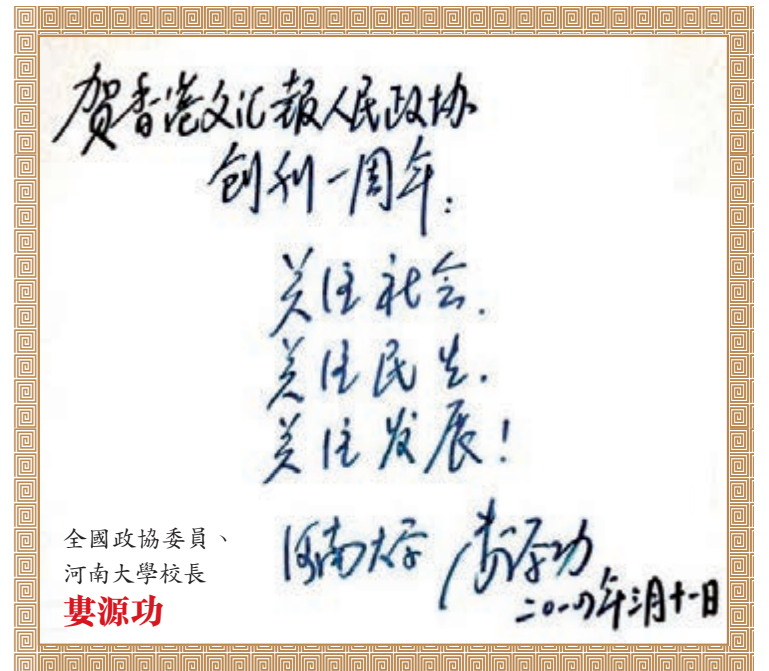 贺香港文汇報人民政协
创刊一周年：
关注社会.
关注民生.
关注发展！
河南大学 娄源功
二〇一四年三月十一日
全國政協委員、
河南大學校長
婁源功